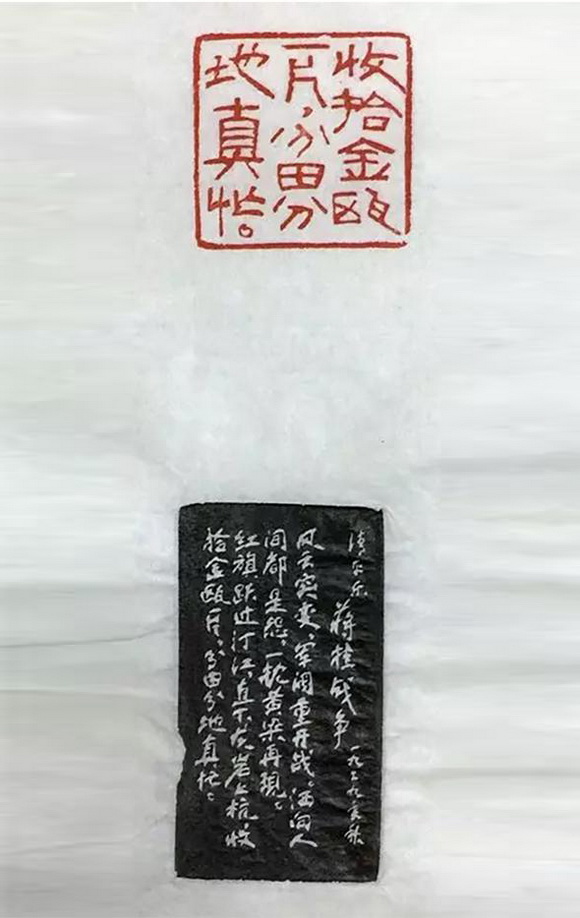 收拾金瓯
一片，分田分
地真忙。
清平乐 蒋桂战争 一九二九年秋
风云突变，军阀重开战。洒向人
间都是怨，一枕黄粱再现。
红旗跃过汀江，直下龙岩上杭。收
拾金瓯一片，分田分地真忙。